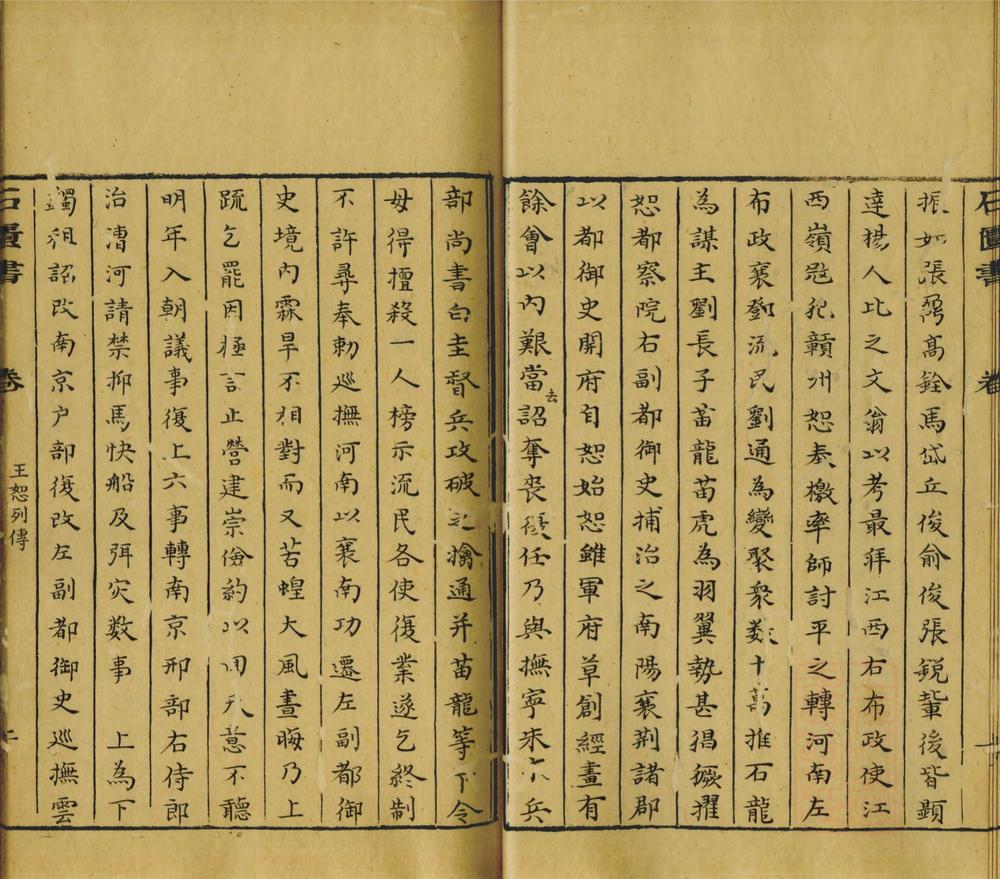 石匱書 卷
振如張鼐高銓馬岱丘俊俞俊張銳輩後皆顯
達楊人比之文翁以考最拜江西右布政使江
西嶺寇犯贛州恕奉檄率師討平之轉河南左
布政襄鄧流民劉通為變聚眾數十萬推石龍
為謀主劉長子苗龍苗虎為羽翼勢甚猖獗擢
恕都察院右副都御史捕治之南陽襄荆諸郡
以都御史開府自恕始恕雖軍府草創經畫有
餘會以內艱當去詔奪喪任乃與撫寧朱兵
部尚書白圭督兵攻破之擒通并苗龍等下令
毋得擅殺一人榜示流民各使復業遂乞終制
不許尋奉勅巡撫河南以襄南功遷左副都御
史境內霖旱不相對而又苦蝗大風晝晦乃上
疏乞罷因極言止營建崇儉約以回天意不聽
明年入朝議事復上六事轉南京刑部右侍郎
治漕河請禁抑馬快船及弭災数事 上為下
蠲租詔改南京户部復改左副都御史巡撫雲
石匱書 卷 王恕列傳